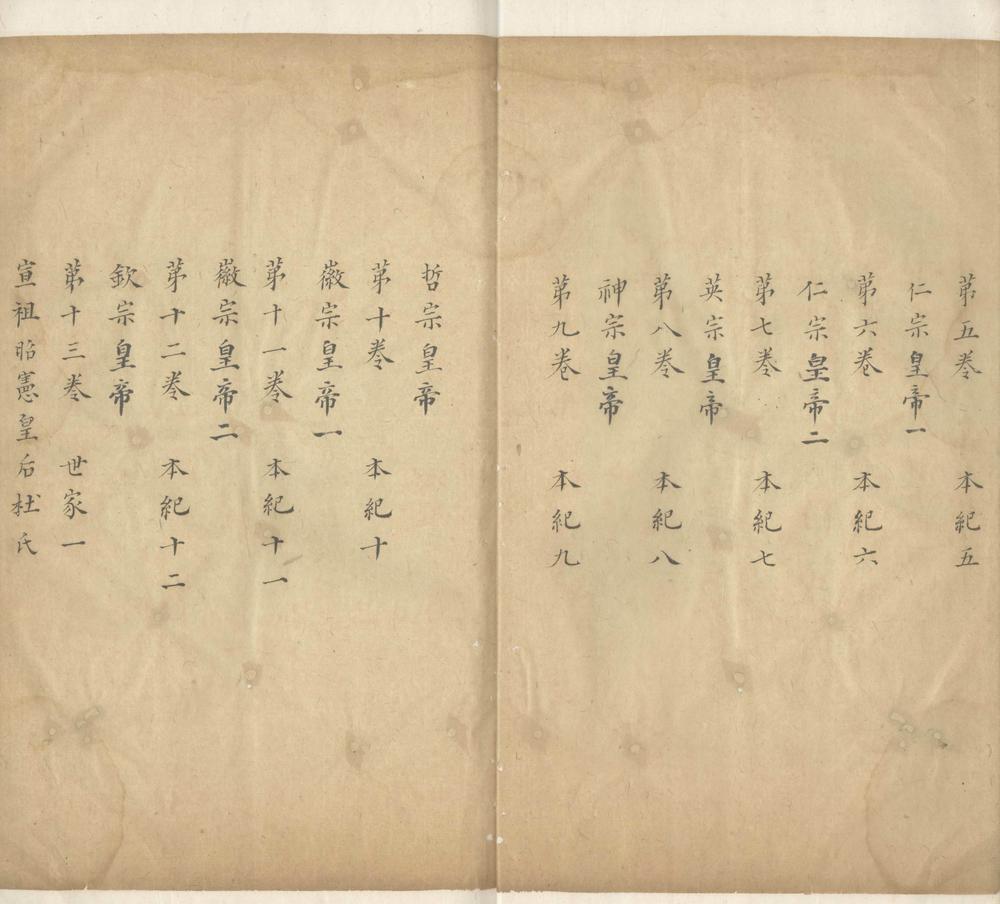 第五卷　本紀五
仁宗皇帝一
第六卷　本紀六
仁宗皇帝二
第七卷　本紀七
英宗皇帝
第八卷　本紀八
神宗皇帝
第九卷　本紀九
哲宗皇帝
第十卷　本紀十
徽宗皇帝一
第十一卷　本紀十一
徽宗皇帝二
第十二卷　本紀十二
欽宗皇帝
第十三卷　世家一
宣祖昭憲皇后杜氏